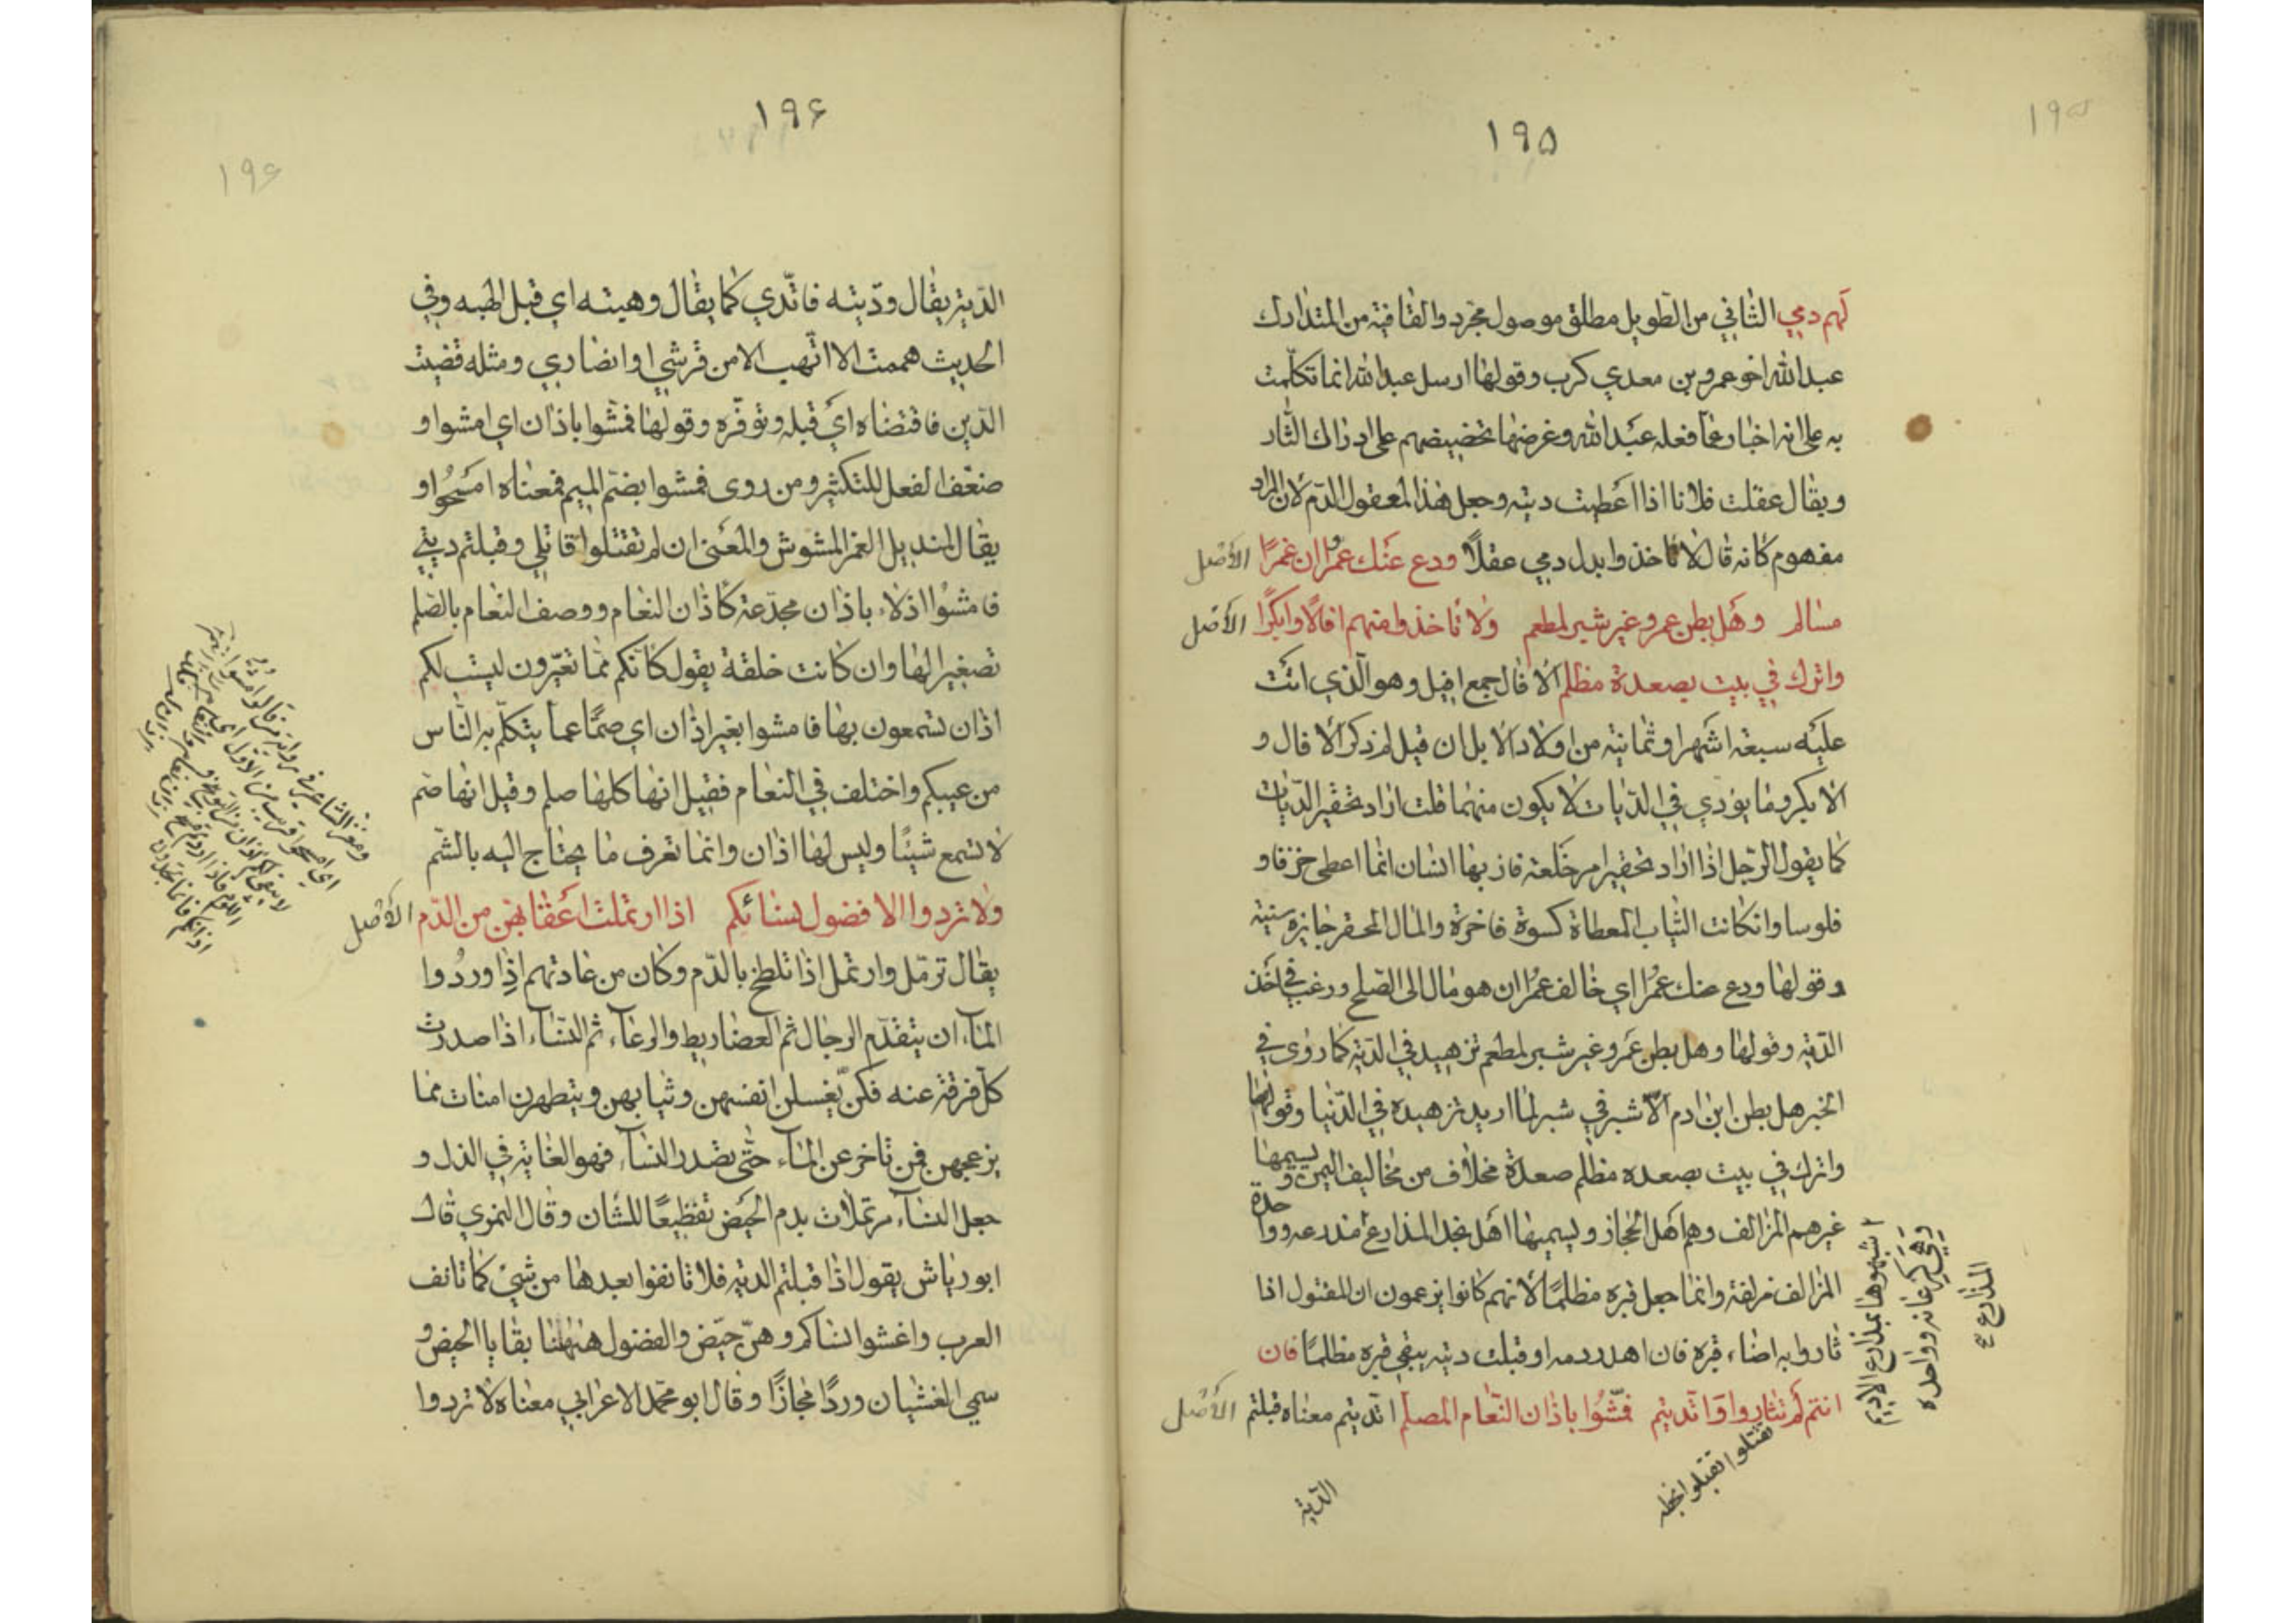 ١٩۵
١٩۵
لهم دمي الثاني من الطويل مطلق موصول مجرد والقافية من المتدارك
عبدالله اخو عمرو بن معدي كرب وقولها ارسل عبدالله انما تكلّمت
به على انه اخبار عمّا فعله عبدالله وغرضها تحضيضهم على ادراك الثار
ويقال عقلت فلانا اذا اعطيت ديته وجعل هذا المعقول الدّم لان المراد
مفهوم كانه قال لا تاخذوا بدل دمي عقلاً ودع عنك عمرا ان عمرًا الاصل
مسالم وهل بطن عمرو غير شبر لمطعم ولا تاخذوا منهم افالًا وابكرًا الاصل
واترك في بيت بصعدة مظلم الافال جمع افيل وهو الّذي اتت
عليه سبعة اشهر او ثمانية من اولاد الابل ان قيل لم ذكر الافال و
الابكر وما يؤدي في الديات لا يكون منهما قلت اراد تحقير الدّيات
كما يقول الرّجل اذا اراد تحقير امر خلعة فاز بها انسان انما اعطى خرقا و
فلوسا وانكانت الثياب المعطاة كسوة فاخرة والمال المحقر جايزة سنية
وقولها ودع عنك عمرًا اي خالف عمرًا ان هو مال الى الصّلح ورغب في اخذ
الدّية وقولها وهل بطن عمرو غير شبر لمطعم تزهيد في الدّية كما روى في
الخبر هل بطن ابن ادم الّا شبر في شبر لما اريد تزهيده في الدّنيا وقولها
واترك في بيت بصعده مظلم صعدة مخلاف من مخاليف اليمن و يسميها
غيرهم المزالف وهم اهل الحجاز ويسميها اهل نجد المذارع مذرعه وواحدة
المزالف مزلفة وانما جعل قبره مظلمًا لانهم كانوا يزعمون ان المقتول اذا
ثاروا به اضاء قبره فان اهدر دمه او قبلت ديته يبقى قبره مظلمًا فان
انتم لم تثاروا واتّديتم فمشّوا باذان النّعام المصلّم اتّديتم معناه قبلتم الاصل
تقتلوا
الدّية
شبهوها بمذارع الاديم
المذارع
١٩۶
١٩۶
الدّية يقال ودّيته فاتّدي كما يقال وهبته اي قبل الهبه وفي
الحديث هممت الا اتّهب الا من قرشي او انصاري ومثله قضيت
الدّين فاقتضاه اي قبله وتوفّره وقولها فمشّوا باذان اي امشوا و
ضعّف الفعل للتكثير ومن روى فمشوا بضمّ الميم فمعناه امسحوا و
يقال لمنديل الغمر المشوش والمعنى ان لم تقتلوا قاتلي وقبلتم ديتي
فامشوا اذلاء باذان مجدّعة كاذان النعام ووصف النعام بالصّلم
تصغيرا لها وان كانت خلقة يقول كانكم ممّا تعيّرون ليست لكم
اذان تسمعون بها فامشوا بغير اذان اي صمًّا عما يتكلّم به النّاس
من عيبكم واختلف في النعام فقيل انها كلها صلم وقيل انها صّم
لا تسمع شيئًا وليس لها اذان وانما تعرف ما يحتاج اليه بالشّم
ولا تردوا الا فضول نسائكم اذا ارتملت اعقابهنّ من الدّم الاصل
يقال ترمّل وارتمل اذا تلطخ بالدّم وكان من عادتهم اذا وردوا
الماء ان يتقدّم الرجال ثم العضاريط والرعاء ثم النّساء اذا صدرت
كل فرقة عنه فكنّ يغسلن انفسهن وثيابهن ويتطهرن امنات مما
يزعجهن فمن تاخر عن الماء حتّى تصدر النساء فهو الغاية في الذل و
جعل النساء مرتملات بدم الحيض تفظيعًا للشان وقال النمري قال
ابو رياش يقول اذا قبلتم الدية فلا تانفوا بعدها من شيئ كما تانف
العرب واغشوا نساكم وهنّ حيّض والفضول ههنا بقايا الحيض و
سمي الغشيان وردًا مجازًا وقال ابو محمّد الاعرابي معناه لا تردوا